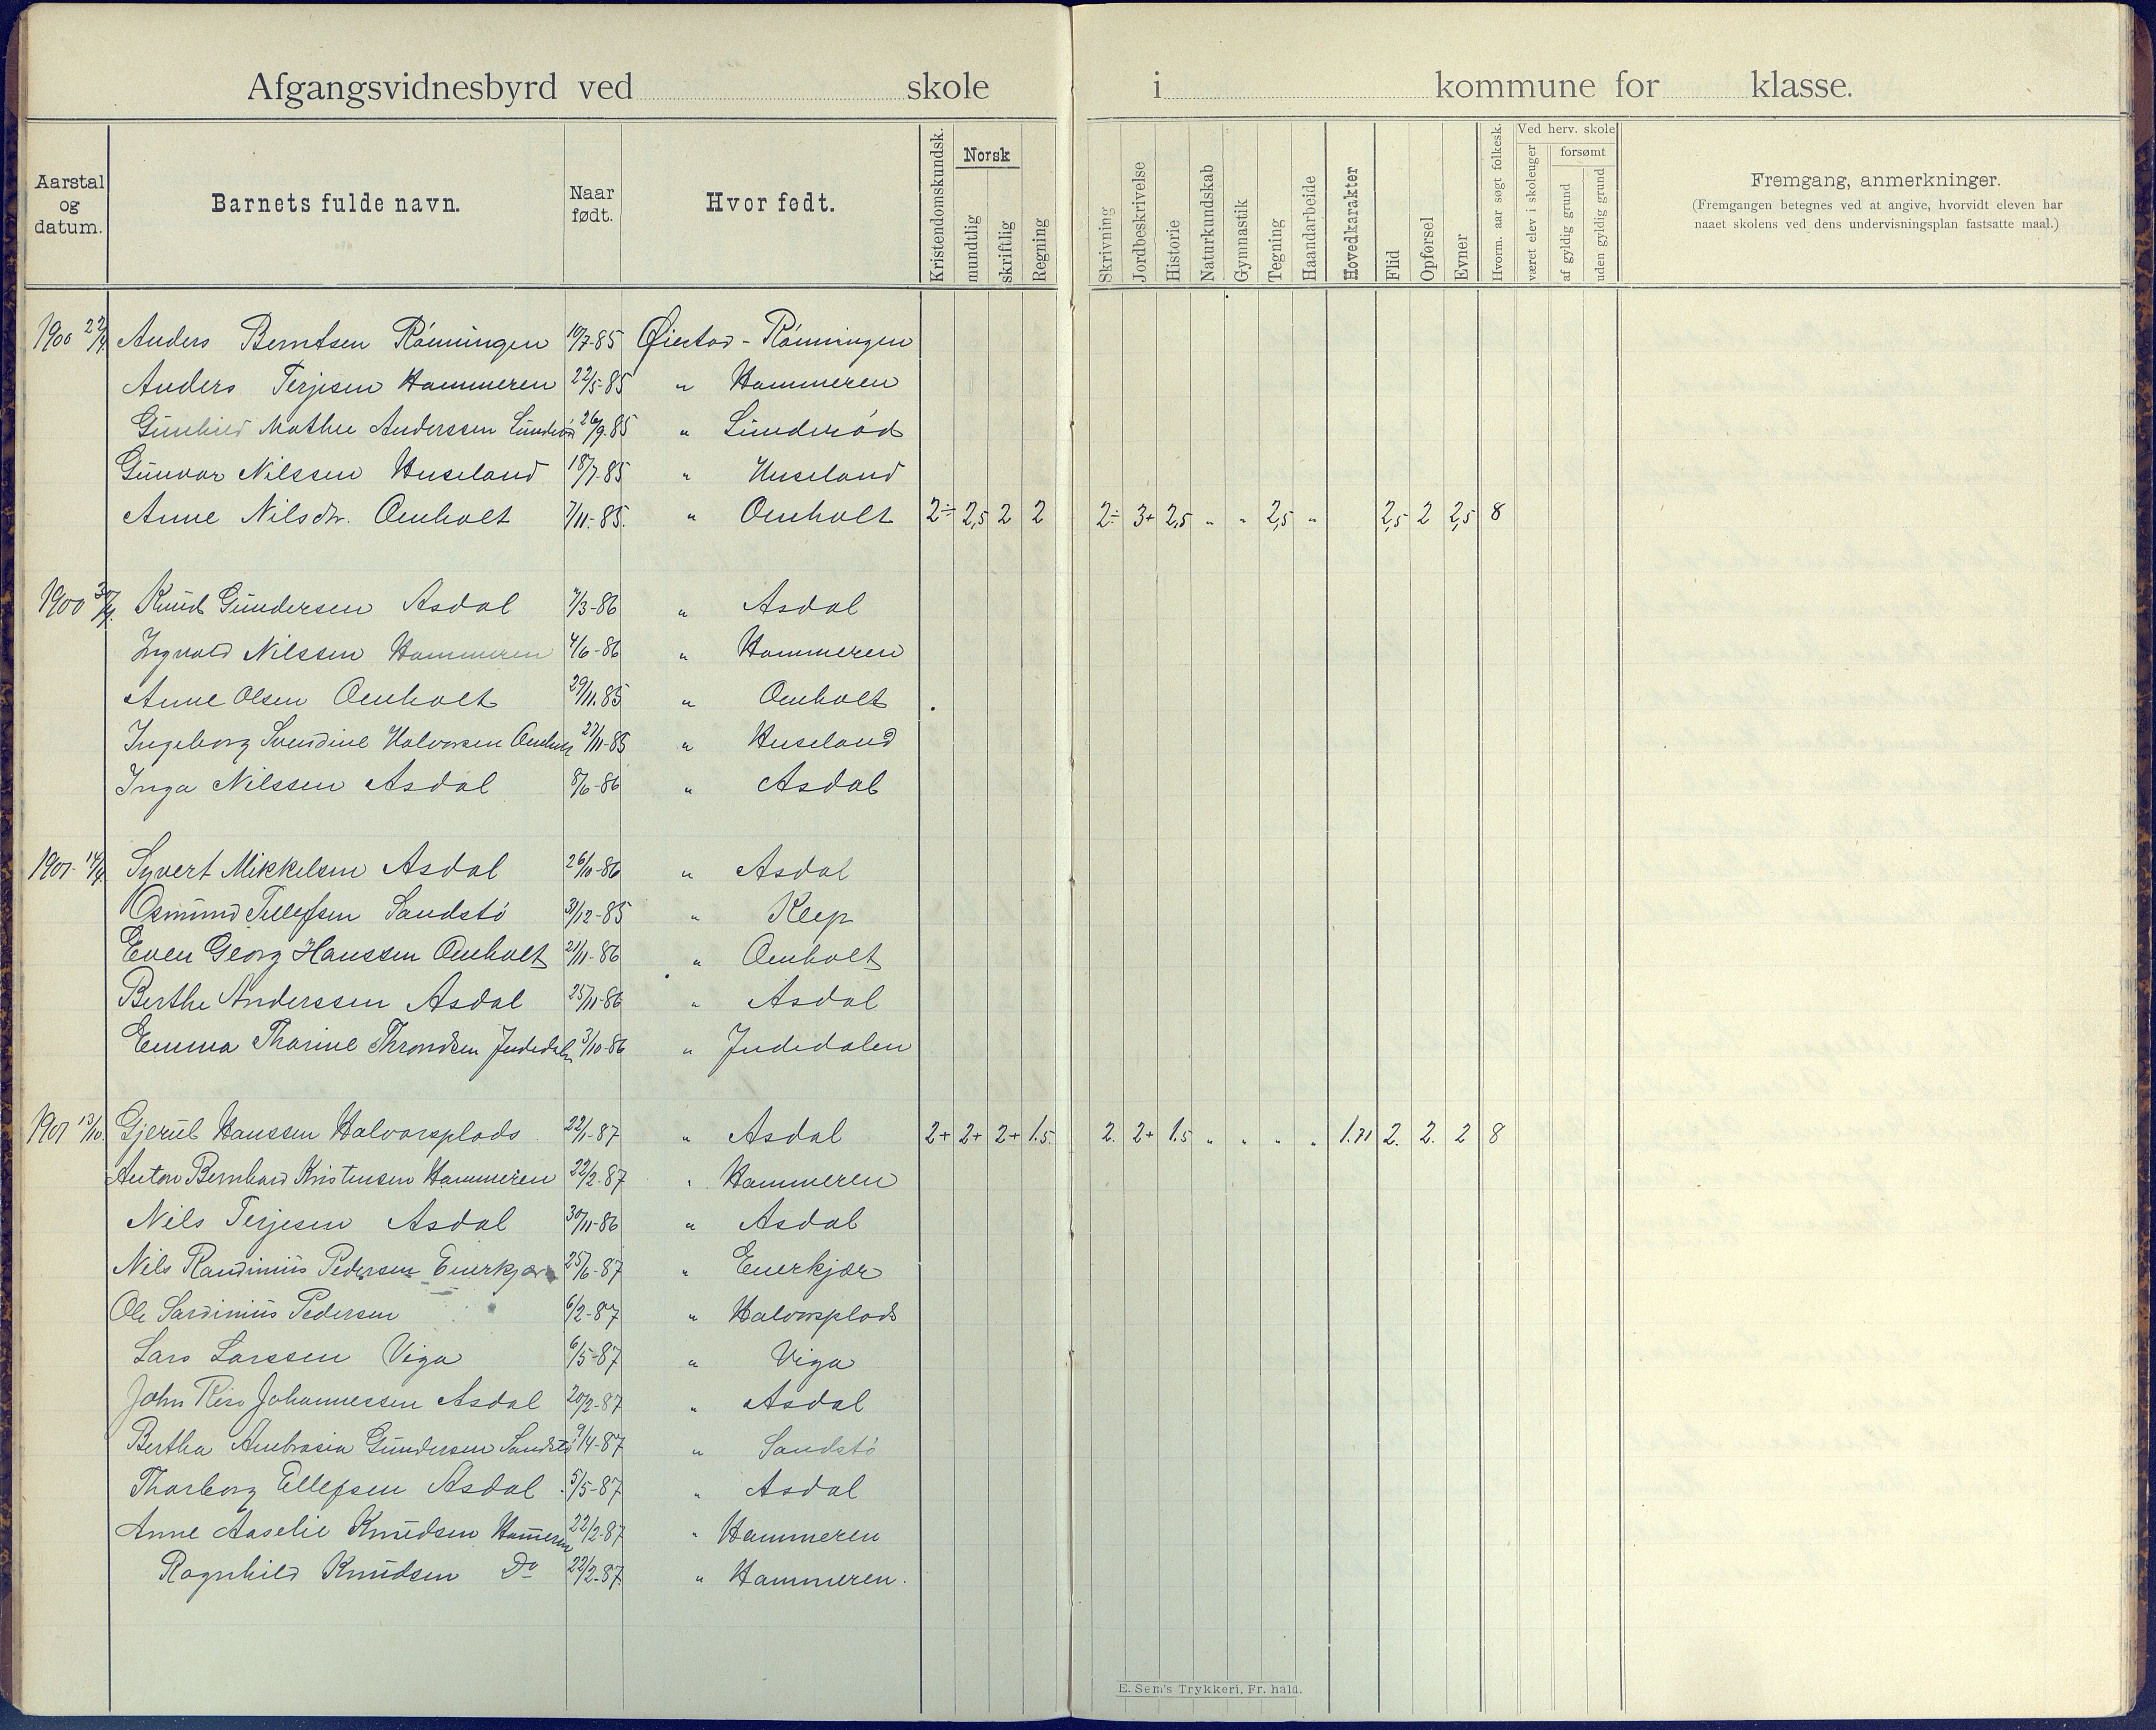 Afgangsvidnesbyrd ved skole i kommune for klasse.
Aarstal og datum. Barnets fulde navn. Naar født. Hvor fedt. Kristendomskundsk. Norsk mundtlig skriftlig Regning Skrivning Jordbeskrivelse Historie Naturkundskab Gymnastik Tegning Haandarbeide Hovedkarakter Flid Opførsel Evner Hvorm. aar søgt folkesk. Ved herv. skole været elev i skoleuger forsømt af gyldig grund uden gyldig grund Fremgang, anmerkninger.
(Fremgangen betegnes ved at angive, hvorvidt eleven har
naaet skolens ved dens undervisningsplan fastsatte maal.)
1900 22/4 Anders Berntsen Rønningen 10/7-85 Øiestad - Rønningen
Anders Terjesen Hammeren 22/5-85 " Hammeren
Gunhild Mathea Anderssen Lunderød 26/9-85 " Lunderød
Gunvor Nilssen Huseland 18/7-85 " Huseland
Anne Nilsdtr. Omholt 7/11-85. " Omholt 2÷ 2,5 2 2 2÷ 3+ 2,5 " " 2,5 " 2,5 2 2,5 8
1900 30/9. Knud Gundersen Asdal 7/3-86 " Asdal
Ingvald Nilssen Hammeren 4/6-86 " Hammeren
Anne Olsen Omholt 29/11.85 " Omholt
Ingeborg Svendine Halvorsen Omholt 27/11-85 " Huseland
Inga Nilssen Asdal 8/6-86 " Asdal
1901. 14/4. Syvert Mikkelsen Asdal 26/10-86 " Asdal
Osmund Tellefsen Sandstø 31/12-85 " Klep
Even Georg Hanssen Omholt 21/11-86 " Omholt
Berthe Anderssen Asdal 25/11-86 " Asdal
Emma Tharine Throndsen Judedalen 3/10-86 " Judedalen
1901 13/10. Gjerul Hanssen Halvorsplads 22/1-87 " Asdal 2+ 2+ 2+ 1.5 2. 2+ 1.5 " " " " 1.71 2. 2. 2 8
Anton Bernhard Kristensen Hammeren 22/2-87 " Hammeren
Nils Terjesen Asdal 30/11-86 " Asdal
Nils Randinius Pedersen Enerkjær 25/6-87 " Enerkjær
Ole Sardinius Pedersen 6/2-87 " Halvorsplads
Lars Larssen Viga 6/5-87 " Viga
John Riso Johannessen Asdal 20/2-87 " Asdal
Bertha Ambrosia Gundersen Sandstø 9/4-87 " Sandstø
Thorborg Ellefsen Asdal 5/5-87 " Asdal
Anne Aaselie Knudsen Hameren 22/2-87 " Hammeren
Ragnhild Knudsen Do 22/2-87. " Hammeren.
E. Sem's Trykkeri, Fr. hald.